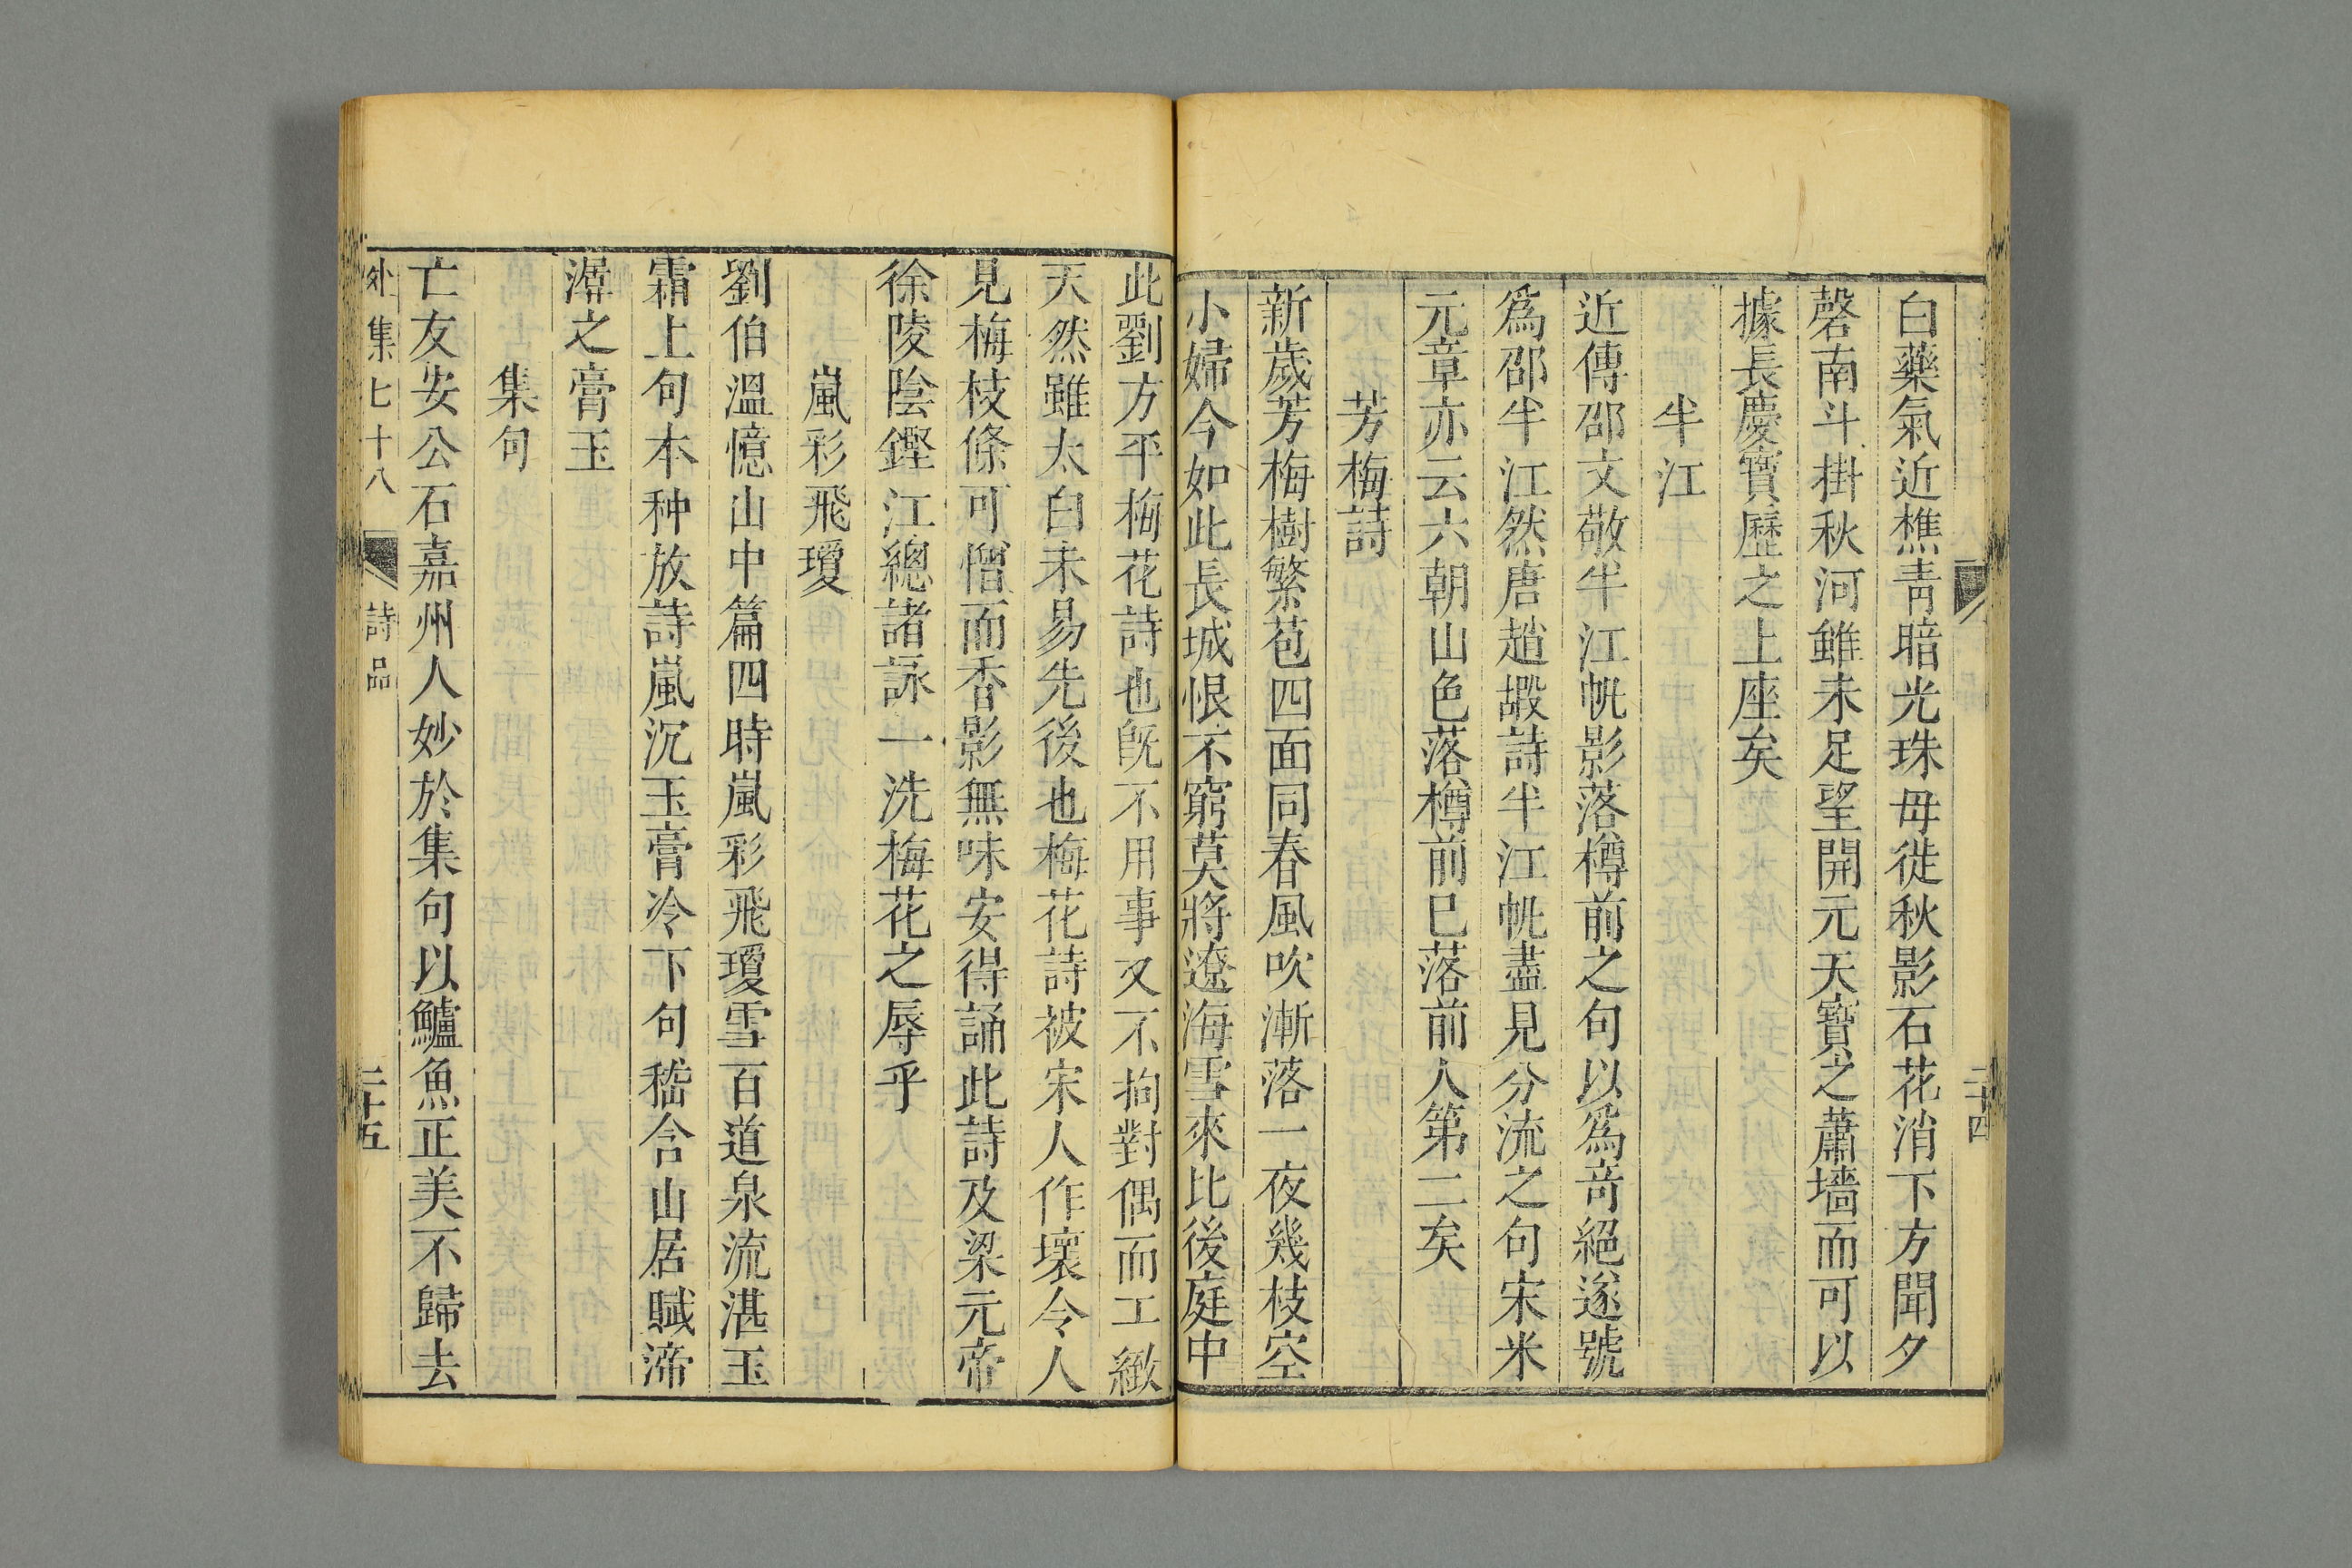 白藥氣近樵靑暗光珠母徙秋影石花消下方聞夕
磬南斗掛秋河雖未足望開元天寶之蕭墻而可以
據長慶寶曆之上座矣
半江
近傳邵文敬半江帆影落樽前之句以爲竒絕遂號
爲邵半江然唐趙嘏詩半江帆盡見分流之句宋米
元章亦云六朝山色落樽前巳落前人第二矣
芳梅詩
新歲芳梅樹繁苞四面同春風吹漸落一夜幾枝空
小婦今如此長城恨不窮莫將遼海雪來比後庭中
二十四
此劉方平梅花詩也旣不用事又不拘對偶而工緻
天然雖太白未易先後也梅花詩被宋人作壞令人
見梅枝條可憎而香影無味安得誦此詩及梁元帝
徐陵陰鏗江總諸詠一洗梅花之辱乎
嵐彩飛瓊
劉伯溫憶山中篇四時嵐彩飛瓊雪百道泉流湛玉
霜上句本种放詩嵐沉玉膏冷下句嵇含山居賦渧
滯之膏玉
集句
亡友安公石嘉州人妙於集句以鱸魚正美不歸去
外集七十八 詩品 二十五